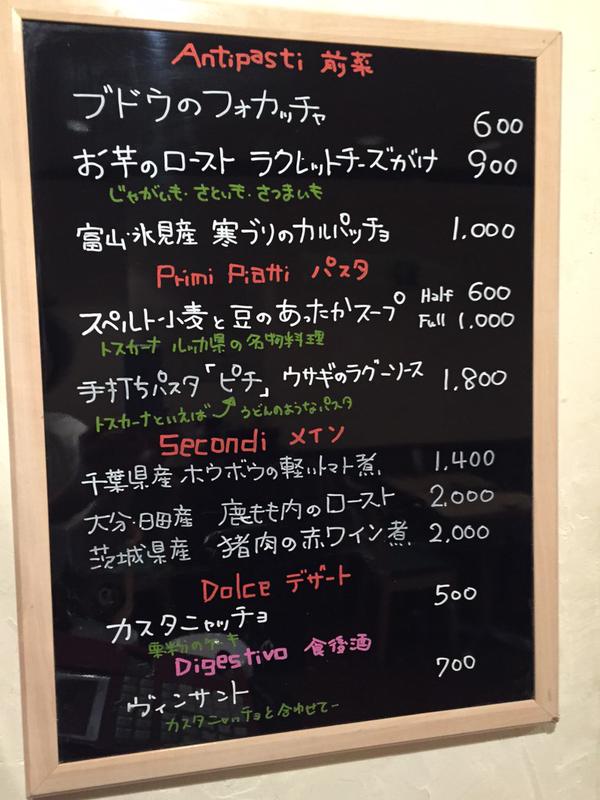 Antipasti 前菜
ブドウのフォカッチャ 600
お芋のロースト ラクレットチーズがけ 900
じゃがいも・さといも・さつまいも
富山・氷見産 寒ブリのカルパッチョ 1.000
Primi Piatti パスタ
スペルト小麦と豆のあったかスープ Half 600
Full 1.000
トスカーナ ルッカ県の名物料理
手打ちパスタ「ピチ」 ウサギのラグーソース 1.800
トスカーナといえば うどんのようなパスタ
Secondi メイン
千葉県産 ホウボウの軽いトマト煮 1.400
大分・日田産 鹿もも肉のロースト 2.000
茨城県産 猪肉の赤ワイン煮 2.000
Dolce デザート
カスタニャッチョ 500
栗粉のケーキ
Digestivo 食後酒
ヴィンサント 700
カスタニャッチョと合わせて〜